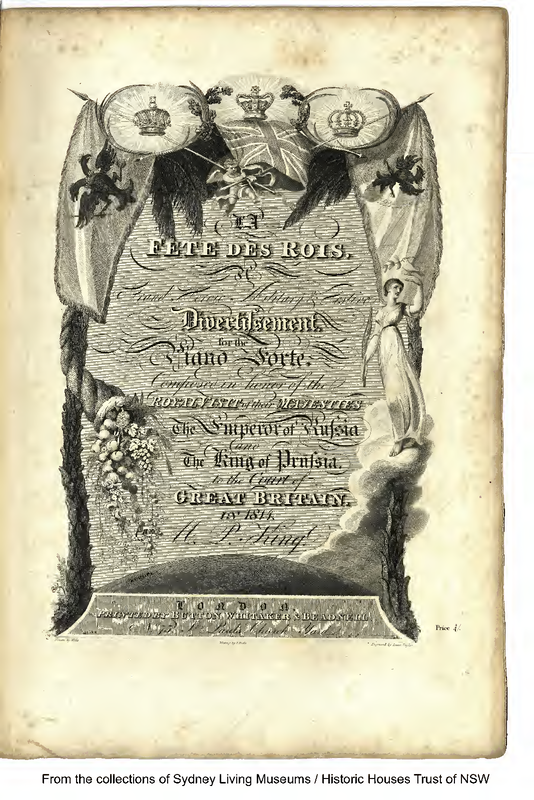 LA
FETE DES ROIS.
Grand Military &
Divertissement,
for the
Piano Forte,
Composed in honor of the
ROYAL VISIT of their MAJESTIES
The Emperor of Russia
and
The King of Prussia.
to the Court of
GREAT BRITAIN.
in 1814.
M. P. King.
LONDON
PRINTED BY BUTTON, WHITAKER & BEADNELL
St. Pauls Church Yard
Price
From the collections of Sydney Living Museums / Historic Houses Trust of NSW